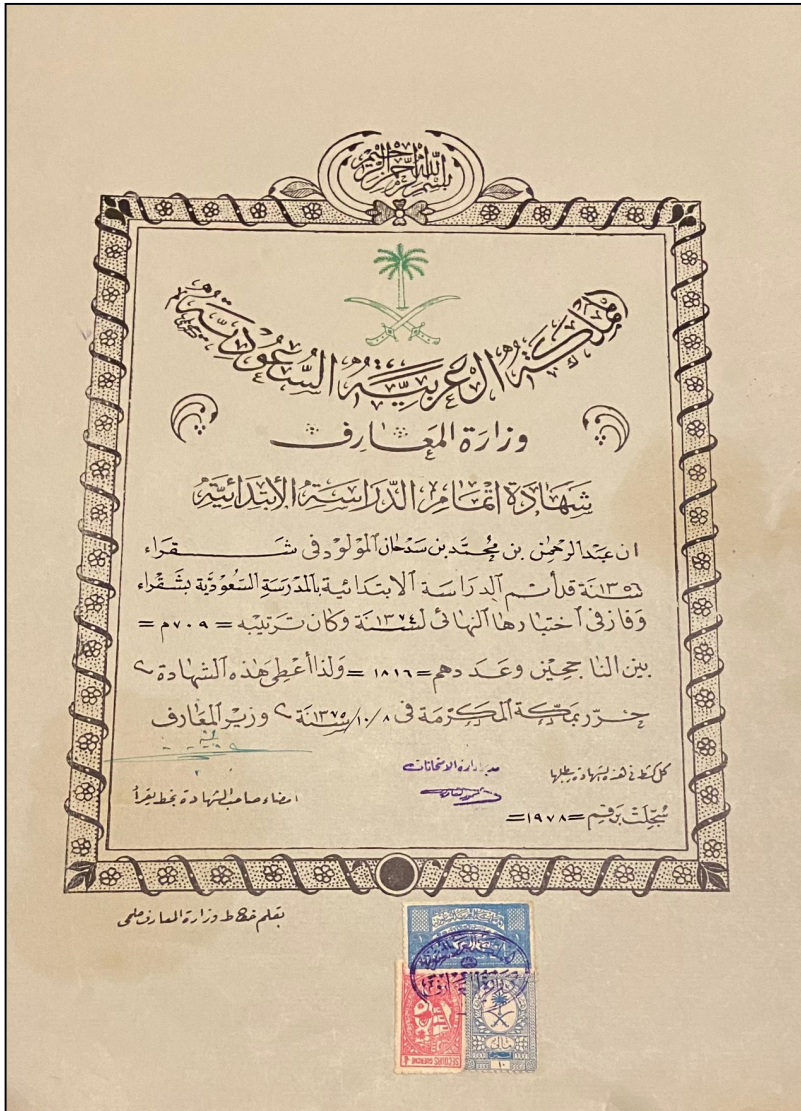 بسم الله الرحمن الرحيم
المملكة العربية السعودية
وزارة المعارف
شهادة اتمام الدراسة الابتدائية
ان عبدالرحمن بن محمد بن سدحان المولود في شقراء
سنة ١٣٥٦ قد أتم الدراسة الابتدائية بالمدرسة السعودية بشقراء
وفاز في اختبارها النهائي لسنة ١٣٧٤ وكان ترتيبه = ٧٠٩م =
بين الناجحين وعددهم = ١٨١٦ = ولذا أعطي هذه الشهادة
حرر بمكة المكرمة في ١٠/٨/ سنة ١٣٧٥ وزير المعارف
كل كشط في هذه الشهادة يبطلها
مدير ادارة الامتحانات
امضاء صاحب الشهادة بخط يقرأ
سجلت برقم = ١٩٧٨ =
بقلم خطاط وزارة المعارف حلمي
وزارة المعارف
١٠
SECOURS GUERCHE